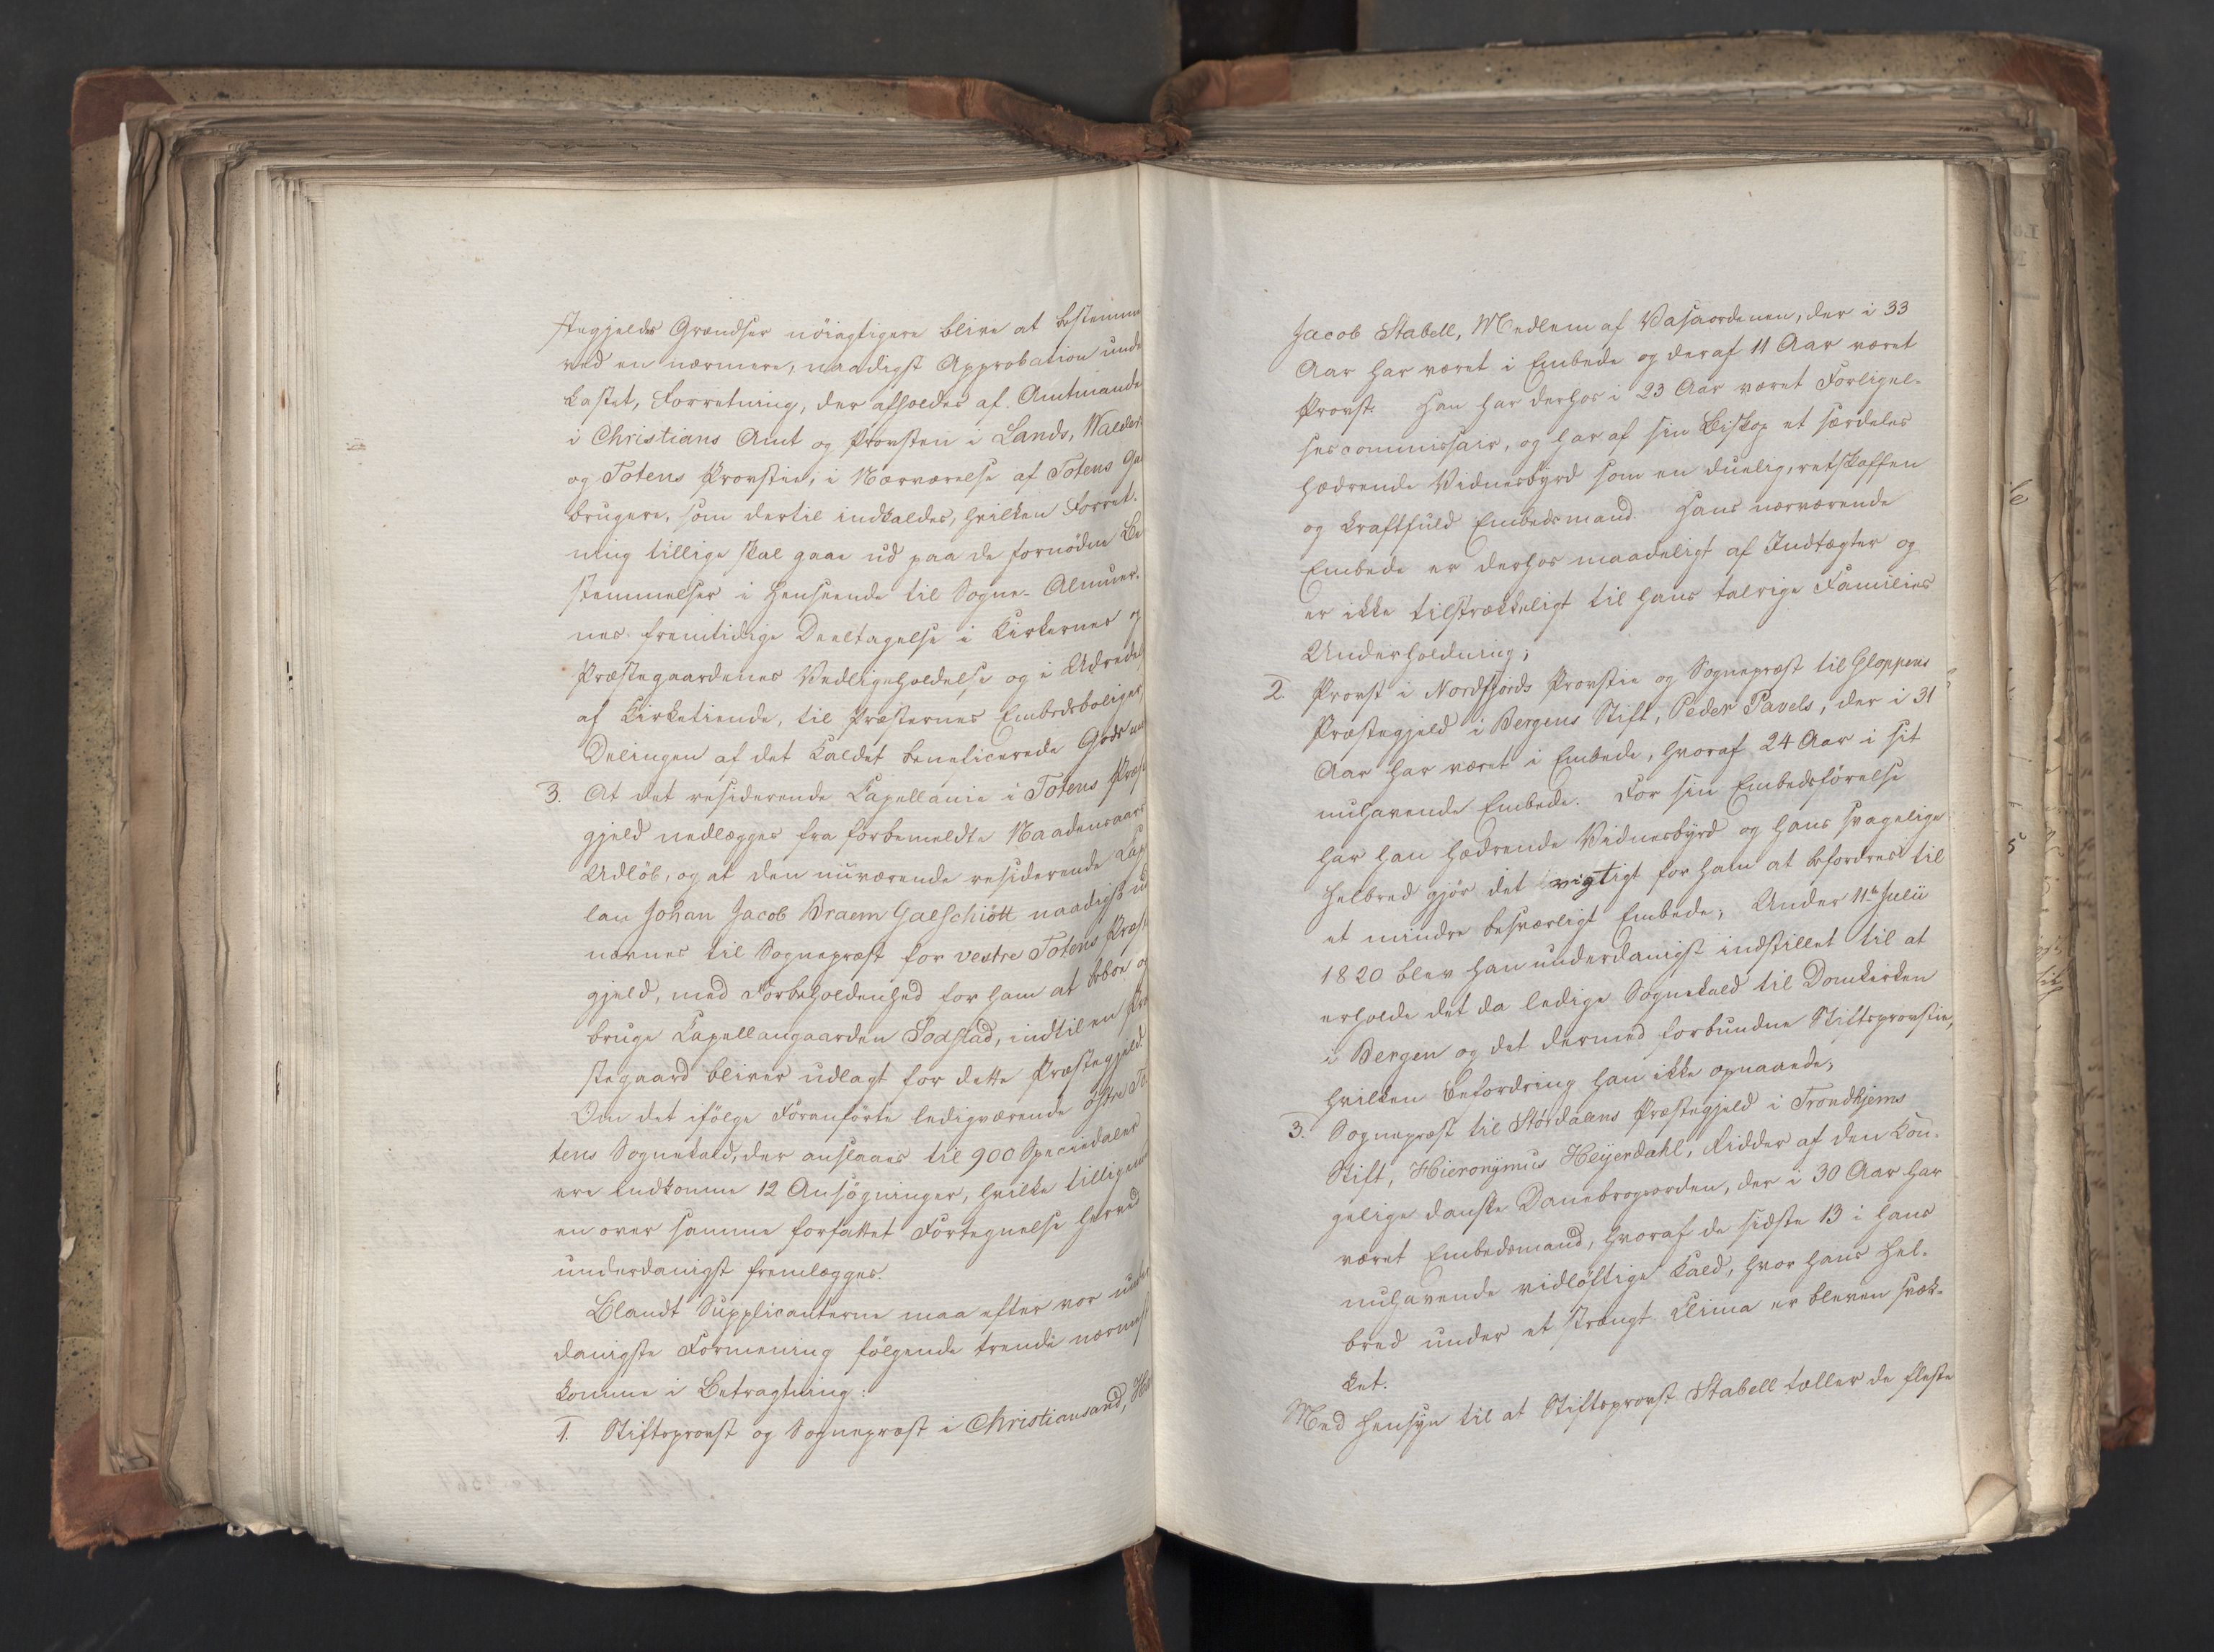 stegjelds Grændser nöiagtigere blive at bestemme
ved en nærmere, naadigst Approbation unde
kastet, Forretning, der afholdes af Amtmande
i Christians Amt og Provsten i Lands, Walders
og Totens Provstie, i Nærværelse af Totens Ga
brugere, som dertil indkaldes, hvilken Forret-
ning tillige skal gaae ud paa de fornödne Be
stemmelser i Henseende til Sogne-Almuer-
nes fremtidige Deeltagelse i Kirkernes og
Præstegaardenes Vedligeholdelse og i Udredel
af Kirketiende, til Præsternes Embedsboliger
Delingen af det Kaldet beneficerede Gods
3. At det residerende Capellanie i Totens Præst
gjeld nedlægges fra forbemeldte Naadensaars
Udlöb, og at den nuværende residerende Cap
lan Johan Jacob Braem Galschiött naadigst ud
nævnes til Sognepræst for vestre Totens Præst
gjeld, med Forbeholdenhed for ham at beboe og
bruge Capellangaarden Sodstad, indtil en Præ
stegaard bliver udlagt for dette Præstegjeld.
Om det ifölge Foranförte ledigværende östre To
tens Sognekald, der anslaaes til 900 Speciedaler
ere indkomne 12 Ansögninger, hvilke tilligemed
en over samme forfattet Fortegnelse herved
underdanigst fremlægges.
Blandt Supplicanterne maa efter vor under
danigste Formening fölgende trende nærmest
komme i Betragtning:
1. Stiftsprovst og Sognepræst i Christiansand,
Jacob Stabell, Medlem af Vasaordenen, der i 33
Aar har været i Embede og deraf 11 Aar været
Provst. Han har derhos i 23 Aar været Forligel-
sescommissair, og har af sin Biskop et særdeles
hædrende Vidnesbyrd som en duelig, retskaffen
og kraftfuld Embedsmand. Hans nærværende
Embede er derhos maadeligt af Indtægter og
er ikke tilstrækkeligt til hans talrige Families
Underholdning;
2. Provst i Nordfjords Provstie og Sognepræst til Gloppens
Præstegjeld i Bergens Stift, Peder Pavels, der i 31
Aar har været i Embede, hvoraf 24 Aar i sit
nuhavende Embede. For sin Embedsförelse
har han hædrende Vidnesbyrd og hans svagelige
Helbred gjör det vigtigt for ham at befordres til
et mindre besværligt Embede; Under 11te Julii
1820 blev han underdanigst indstillet til at
erholde det da ledige Sognekald til Domkirken
i Bergen og det dermed forbundne Stiftsprovstie,
hvilken Befordring han ikke opnaaede;
3. Sognepræst til Stördalens Præstegjeld i Trondhjems
Stift, Hieronymus Heyerdahl, Ridder af den Kon-
gelige danske Danebrogsorden, der i 30 Aar har
været Embedsmand, hvoraf de sidste 13 i hans
nuhavende vidlöftige Kald, hvor hans Hel-
bred under et strængt Clima er bleven svæk-
ket.
Med Hensyn til at Stiftsprovst Stabell tæller de fleste